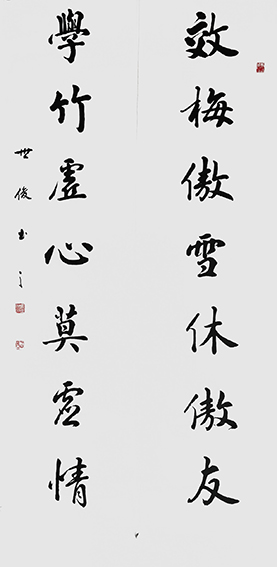 效梅傲雪休傲友
學竹虛心莫虛情
世俊书